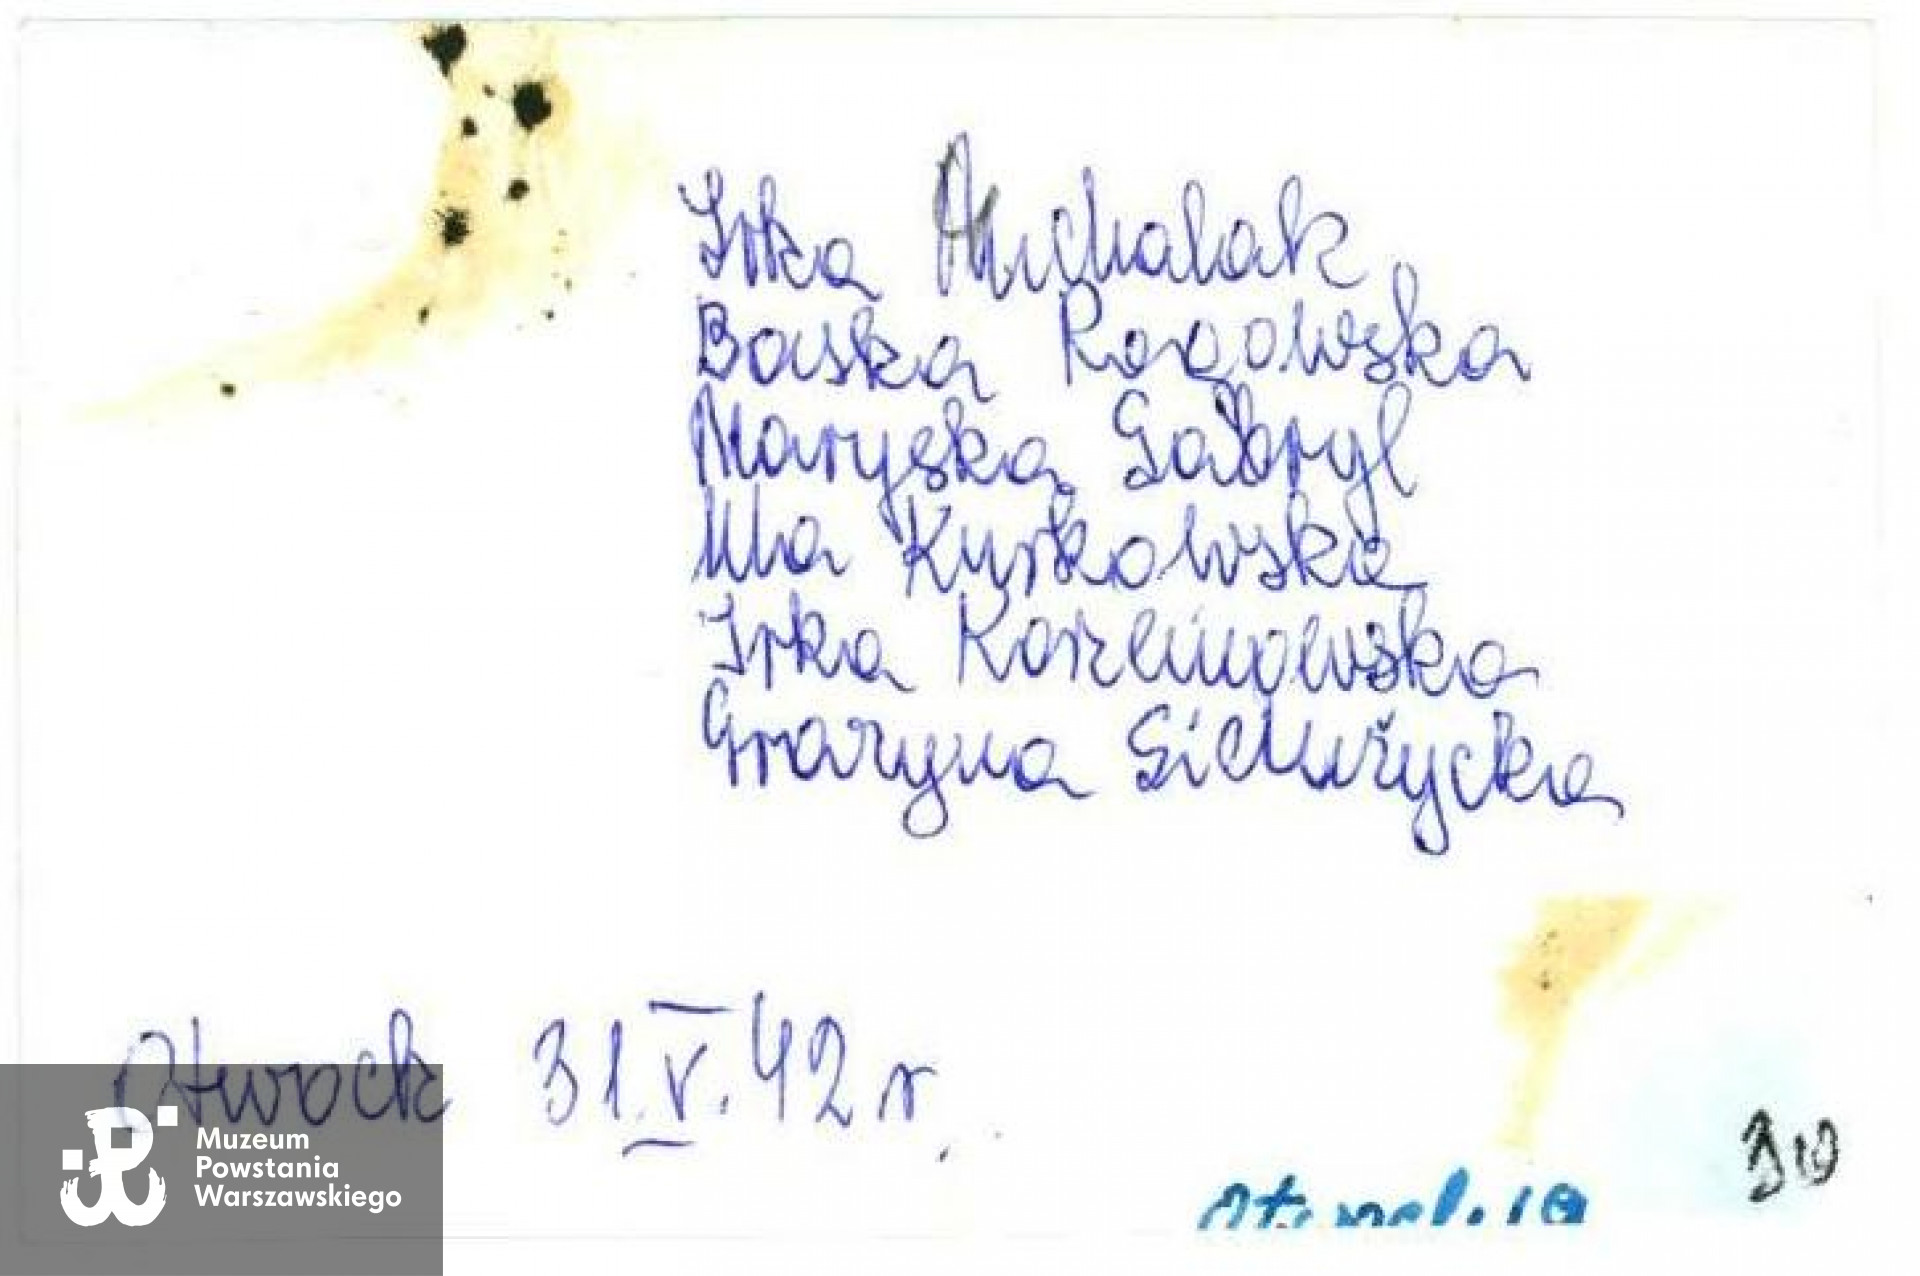 Irka Michalak
Baśka Rogowska
Maryśka Gabryl
Ula Kurkowska
Irka Korzeniowska
Grażyna Giełżycka
Otwock 31.V.42 r.
Muzeum
Powstania
Warszawskiego